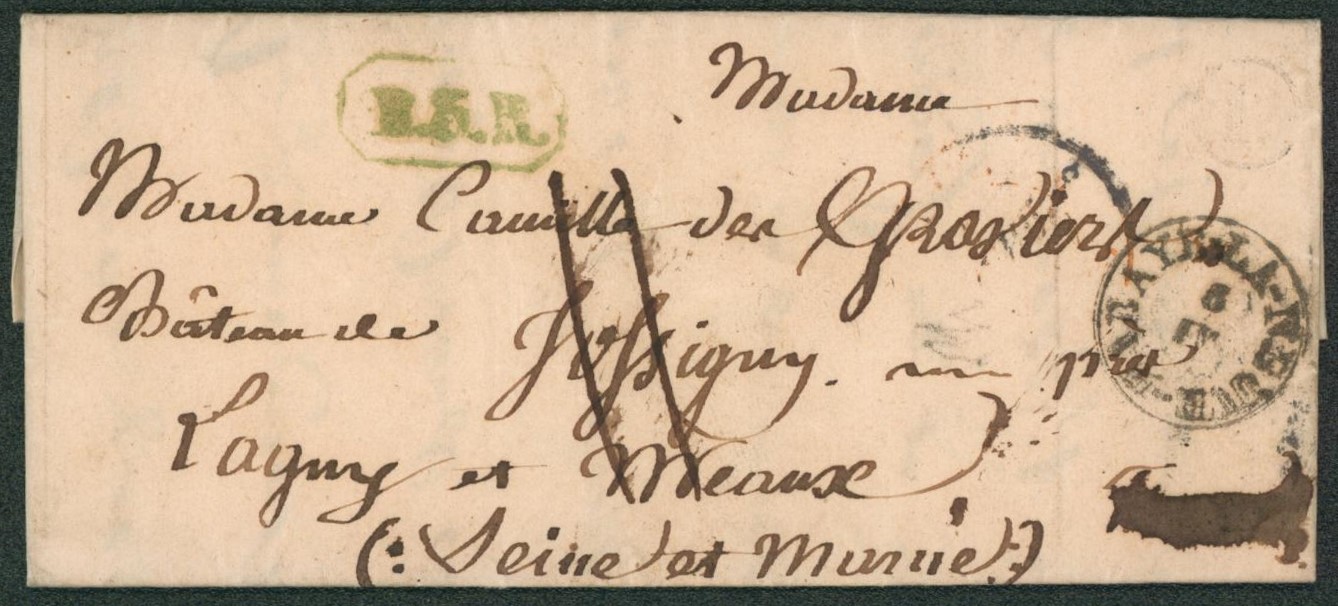 B.5.R.
Madame
Madame Camille des Graviers
Bâteau de Jossigny. près
Lagny et Meaux
(: Seine et Marne :)
LA-NEUVE
8